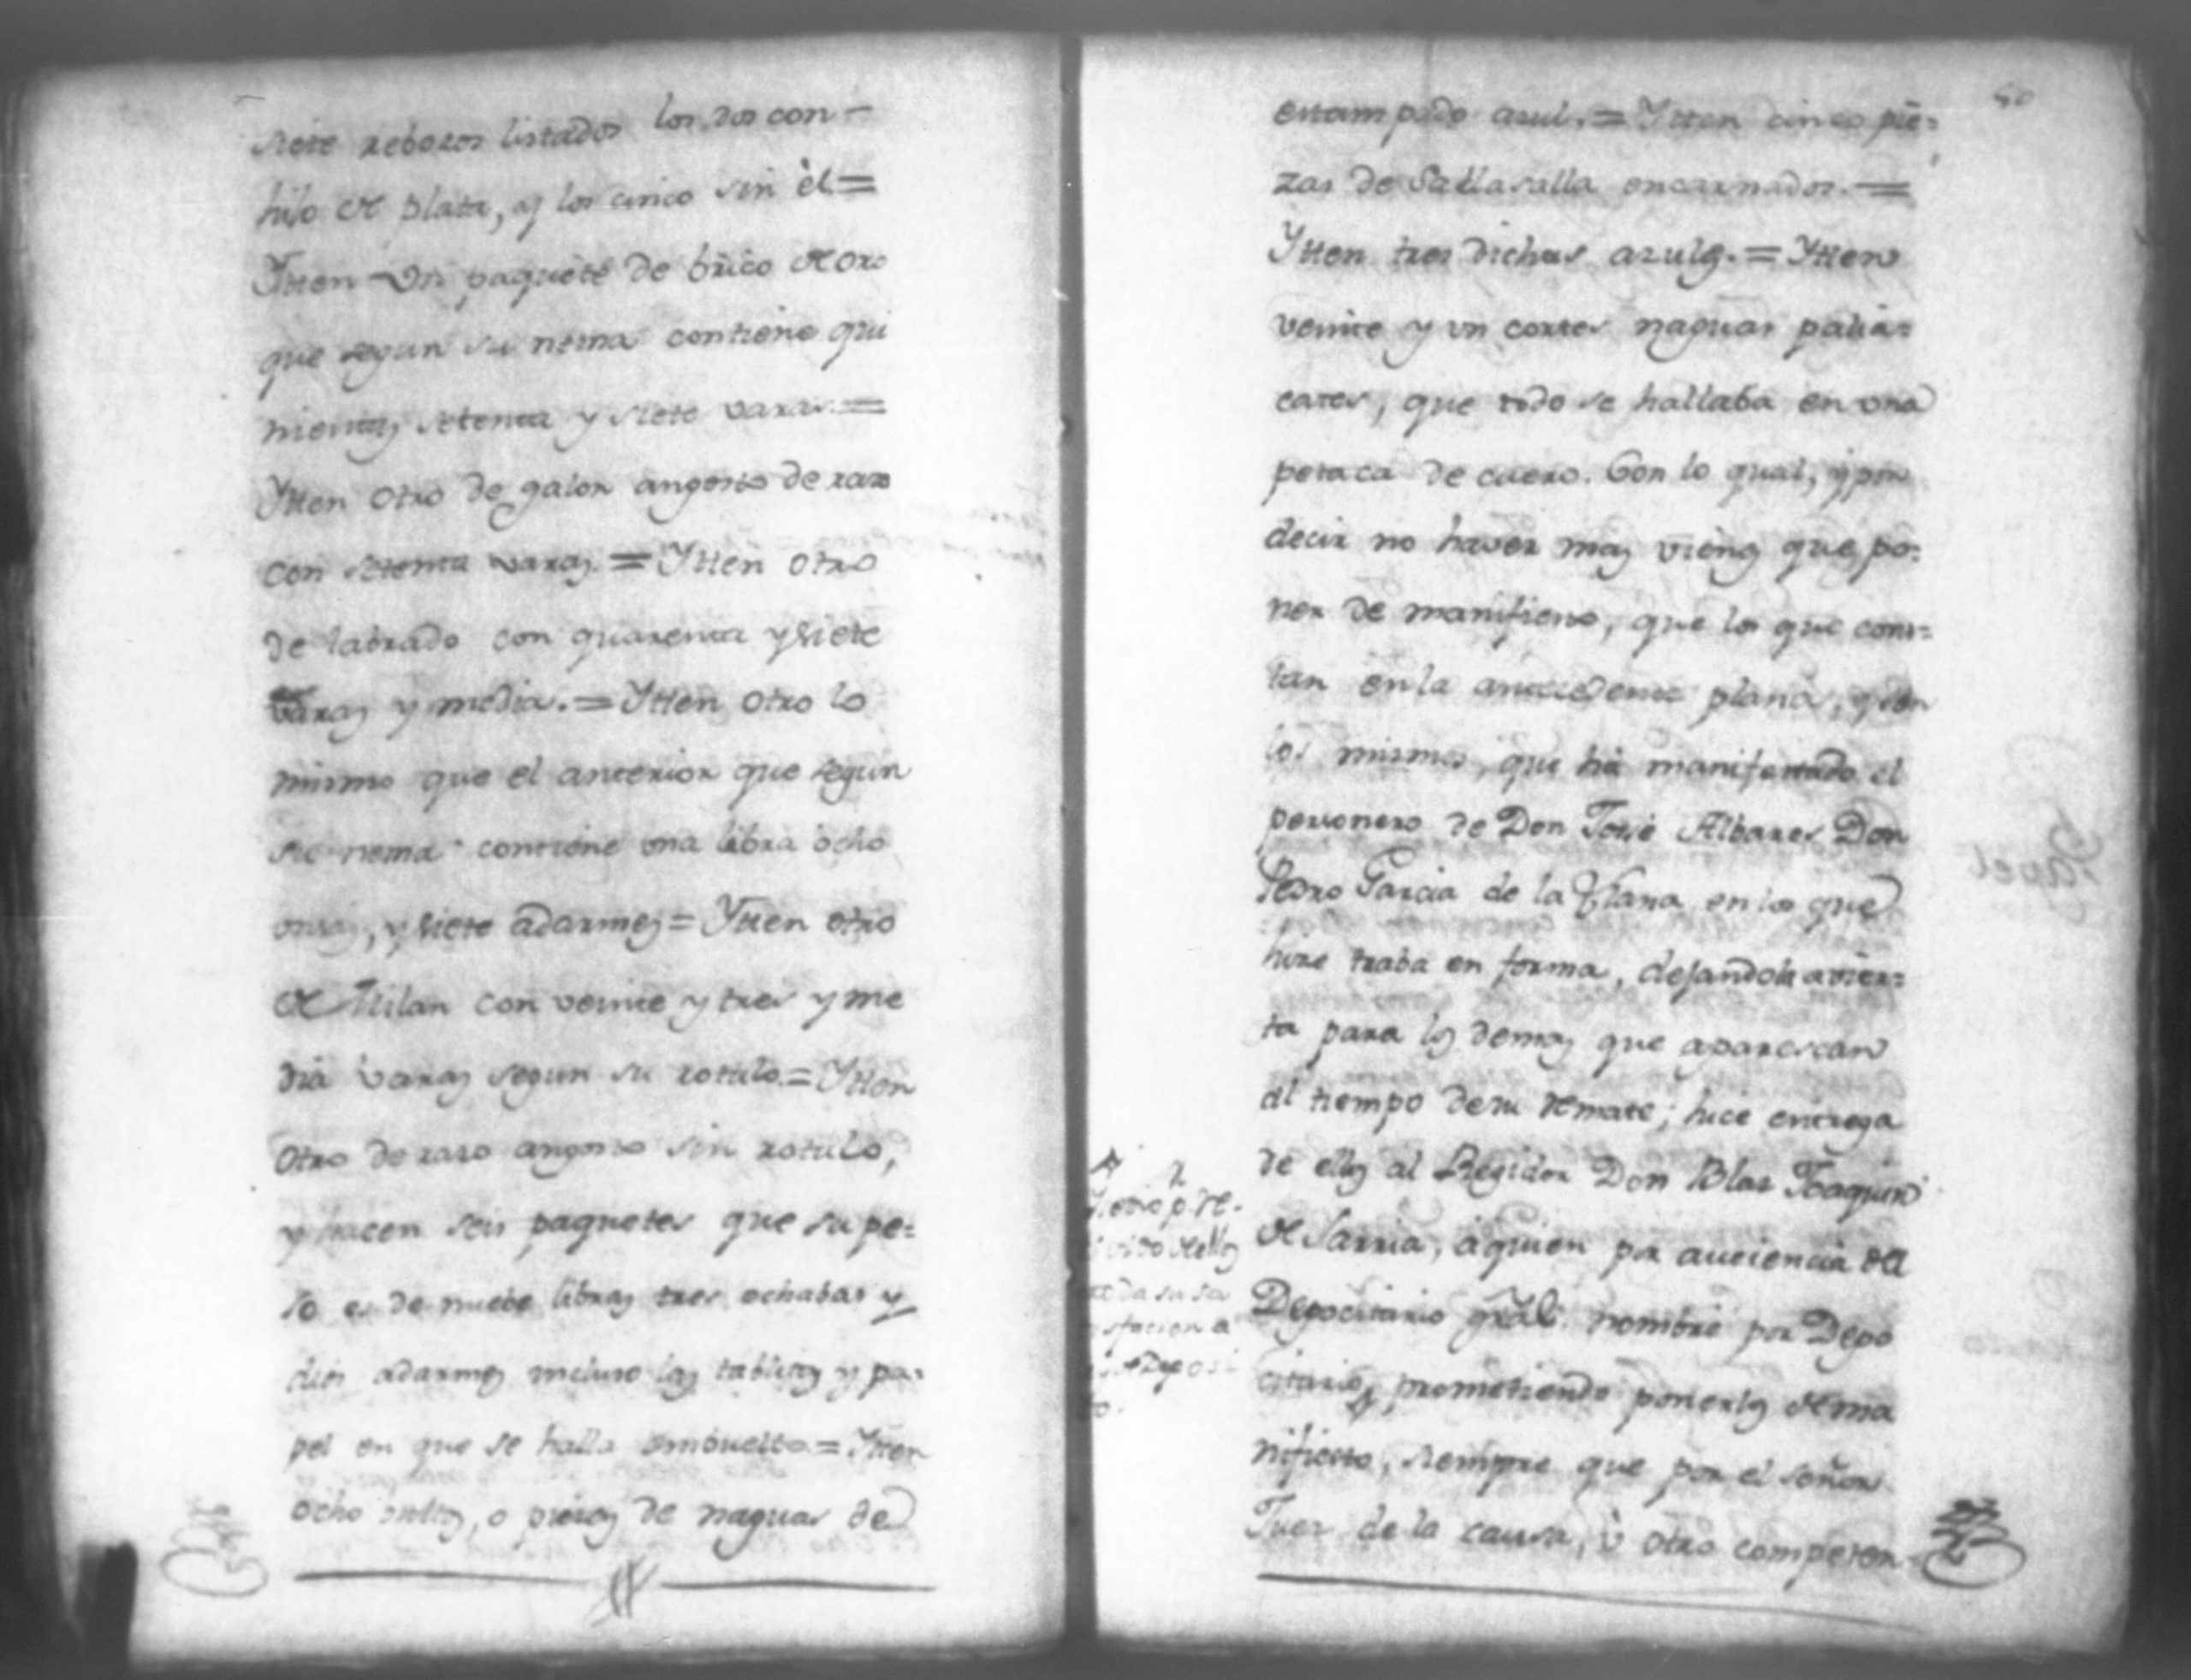 siete rebozos listados los dos con
hilo de plata, y los cinco sin èl =
Ytten Vn paquete de brico de oro
que segun su nema contiene qui
nientas setenta y siete varas. =
Ytten otro de galon angosto de razo
con setenta varas. = Ytten otro
de labrado con quarenta y siete
varas y media. = Ytten otro lo
mismo que el anterior que segun
su nema contiene una libra ocho
onzas, y siete adarmes = Ytten otro
de Milan con veinte y tres y me
dia varas segun su rotulo. = Ytten
otro de razo angosto sin rotulo,
y hacen seis paquetes que su pe=
so es de nuebe libras tres ochabas y
dies adarmes incluso las tablitas y pa=
pel en que se halla embuelto. = Ytten
ocho, o piezas de naguas de
50
estampado azul. = Ytten cinco pie=
zas de Sallasalla encarnados. =
Ytten tres dichas azules. = Ytten
veinte y un cortes naguas palia=
cates, que todo se hallaba en una
petaca de cuero. Con lo qual, y por
decir no haver mas vienes que po=
ner de manifiesto, que los que cons=
tan en la antecedente plana, y son
los mismos, que há manifestado el
personero de Don José Albares Don
Pedro Garcia de la Llana en los que
hize traba en forma, dejandola avier=
ta para los demas que aparescan
al tiempo de su remate; hice entrega
de ellos al Regidor Don Blas Joaquin
de Sarria, aquien por auciencia del
Depocitario gral. nombré por Depo
citario, prometiendo ponerlos de ma
nifiesto, siempre que por el señor
Juez de la causa, ù otro competen